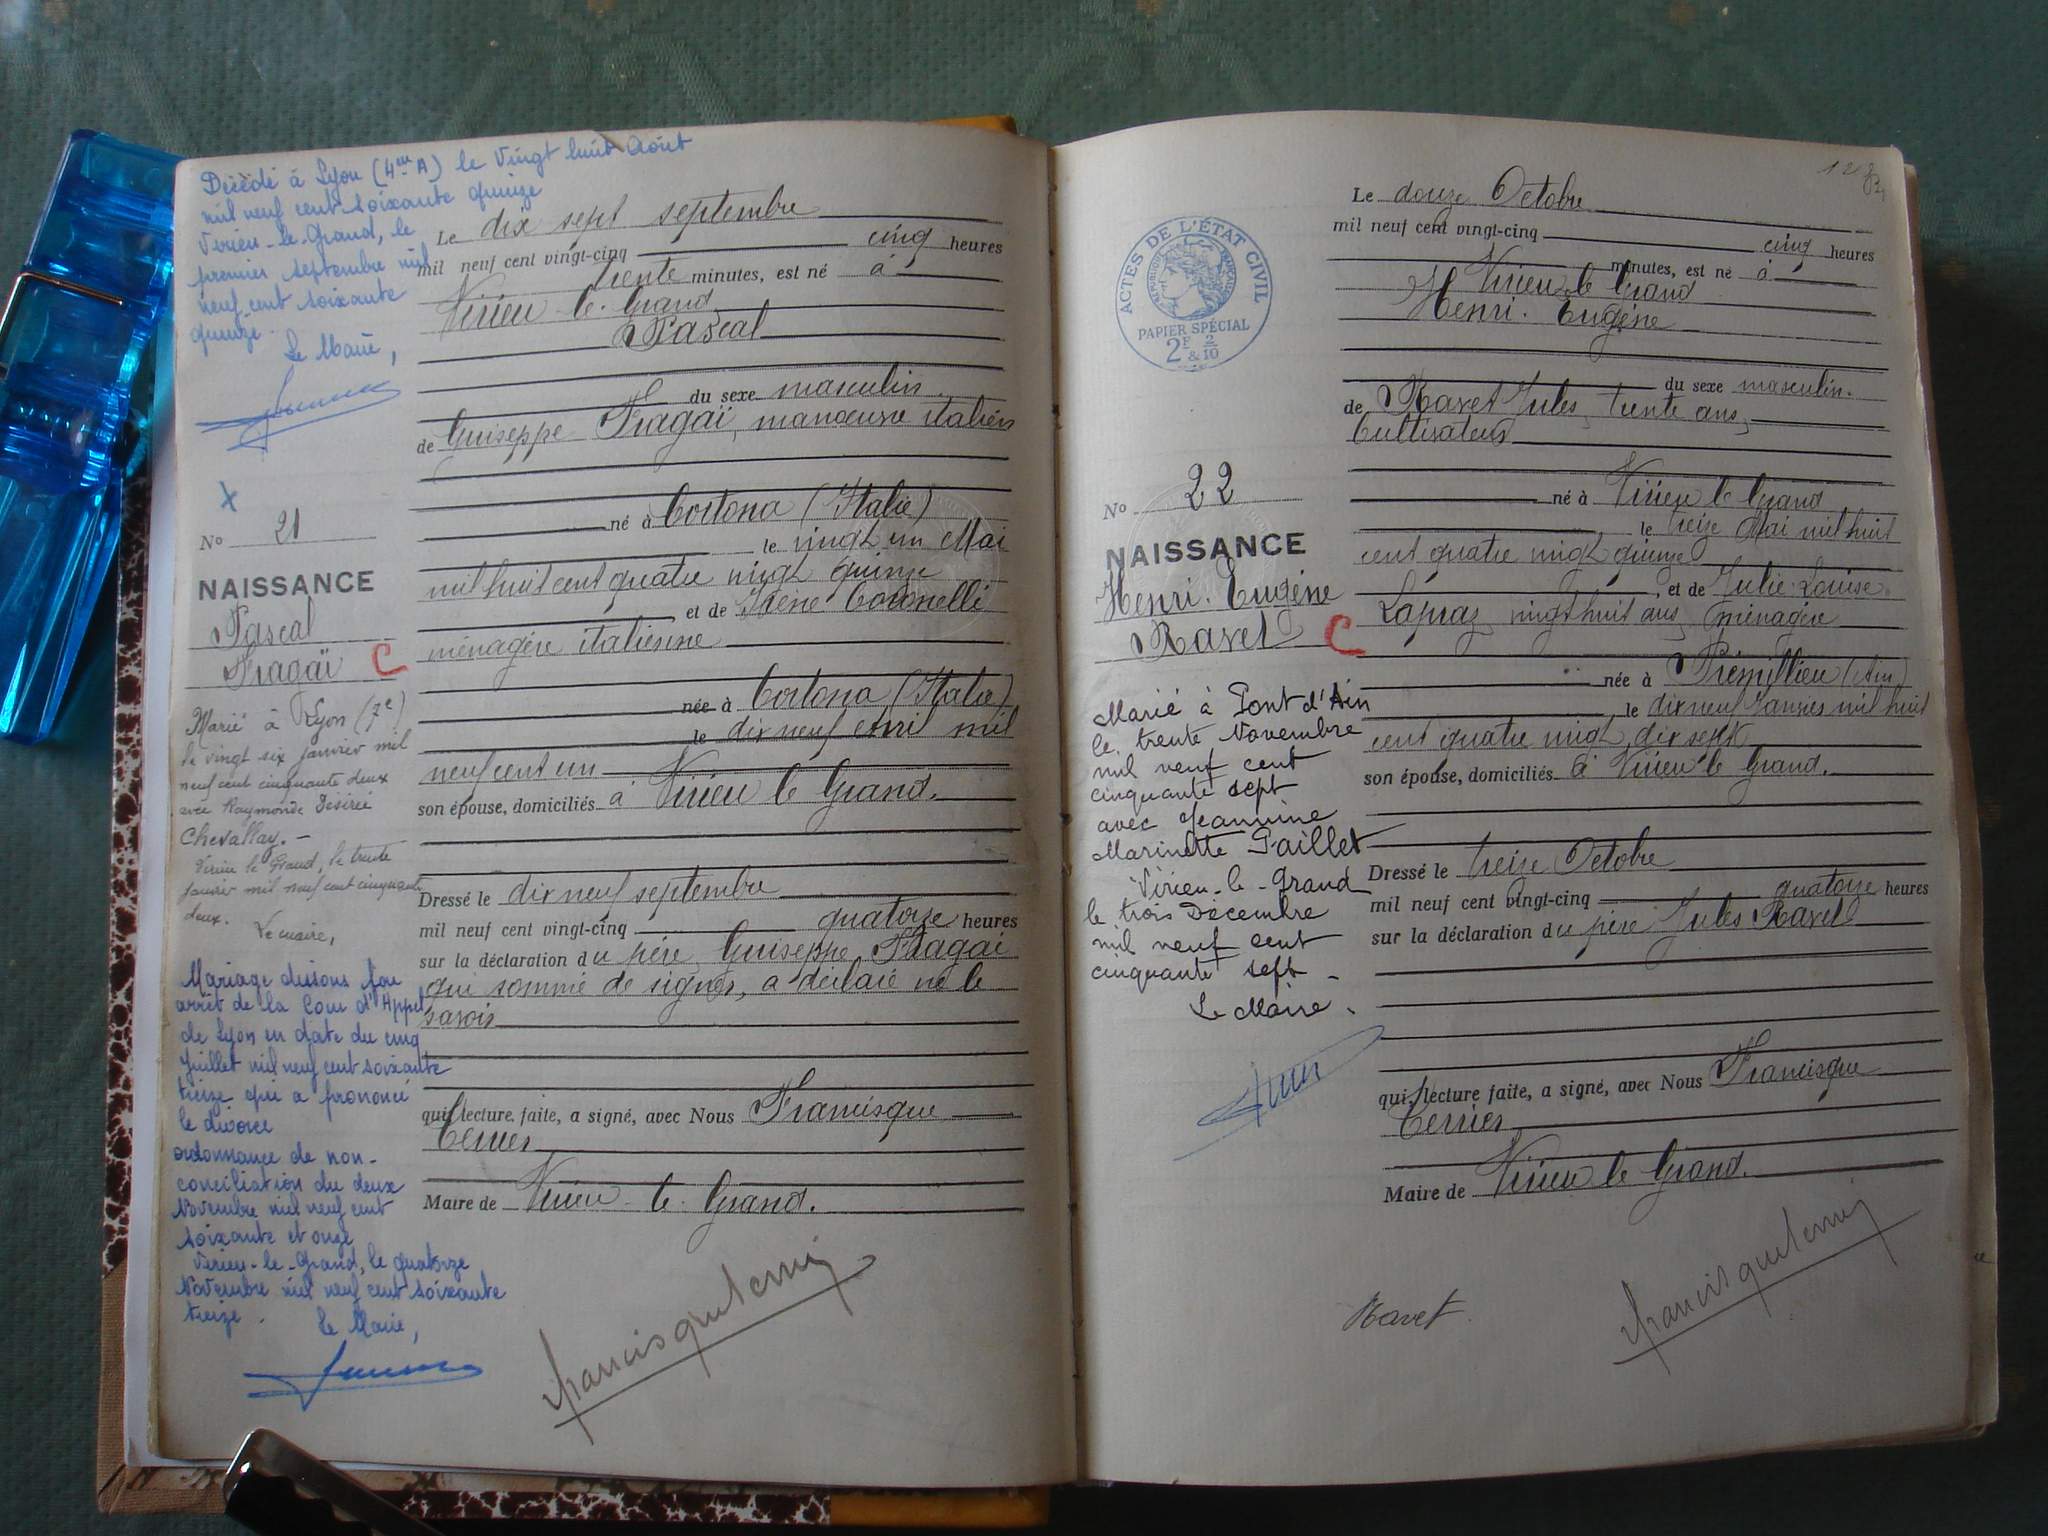 Décédé à Lyon (4me A) le Vingt huit Août
mil neuf cent soixante quinze
Virieu-le-Grand, le
premier septembre mil
neuf cent soixante
quinze.
Le Maire,
X
No 21
NAISSANCE
Pascal
Fragaï C
Marié à Lyon (7e)
le vingt six janvier mil
neuf cent cinquante deux
avec Raymonde Désirée
Chevallay.-
Virieu le Grand, le trente
janvier mil neuf cent cinquante
deux.
Le maire,
Mariage dissous par
arrêt de la Cour d'Appel
de Lyon en date du cinq
Juillet mil neuf cent soixante
treize qui a prononcé
le divorce
ordonnance de non-
conciliation du deux
Novembre mil neuf cent
soixante et onze
Virieu-le-Grand, le quatorze
Novembre mil neuf cent soixante
treize.
Le Maire,
Le dix sept septembre
mil neuf cent vingt-cinq cinq heures
trente minutes, est né à
Virieu-le-Grand
Pascal
du sexe masculin
de Guiseppe Fragaï, manoeuvre italien
né à Cortona (Italie)
le vingt un Mai
mil huit cent quatre vingt quinze
et de Irène Coronelli
ménagère italienne
née à Cortona (Italie)
le dix neuf avril mil
neuf cent un
son épouse, domiciliés à Virieu le Grand.
Dressé le dix neuf septembre
mil neuf cent vingt-cinq quatorze heures
sur la déclaration du père, Guiseppe Fragaï
qui sommé de signer, a déclaré ne le
savoir
qui, lecture faite, a signé, avec Nous Francisque
Ternier
Maire de Virieu-le-Grand.
ACTES DE L'ÉTAT CIVIL
RÉPUBLIQUE FRANÇAISE
PAPIER SPÉCIAL
2F & 2/10
No 22
NAISSANCE
Henri. Eugène
Ravet C
Marié à Pont d'Ain
le trente Novembre
mil neuf cent
cinquante sept
avec Jeannine
Marinette Paillet
Virieu-le-Grand
le trois Décembre
mil neuf cent
cinquante sept -
Le Maire.
Le douze Octobre
mil neuf cent vingt-cinq cinq heures
minutes, est né à
Virieu le Grand
Henri. Eugène
du sexe masculin.
de Ravet Jules, trente ans,
Cultivateur
né à Virieu le Grand
le treize Mai mil huit
cent quatre vingt quinze
, et de Julie-Louise
Lapraz, vingt huit ans, ménagère
née à Prémillieu (Ain)
, le dix neuf Janvier mil huit
cent quatre vingt dix sept
son épouse, domiciliés à Virieu le Grand.
Dressé le treize Octobre
mil neuf cent vingt-cinq quatorze heures
sur la déclaration du père Jules Ravet
qui, lecture faite, a signé, avec Nous Francisque
Ternier
Maire de Virieu le Grand.
Ravet